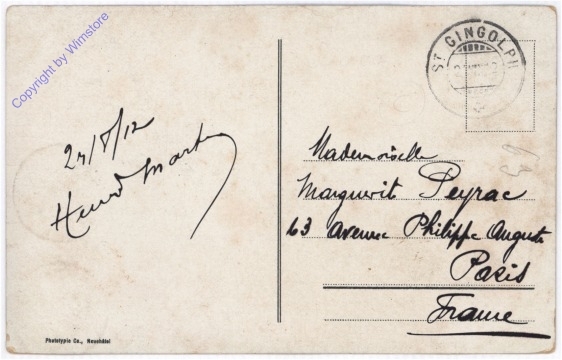 Copyright by Wimstore
ST GINGOLPH
24/8/12
Henri Martin
Mademoiselle
Marguerit Peyrac
63 Avenue Philippe Auguste
Paris
France
Phototypie Co., Neuchâtel